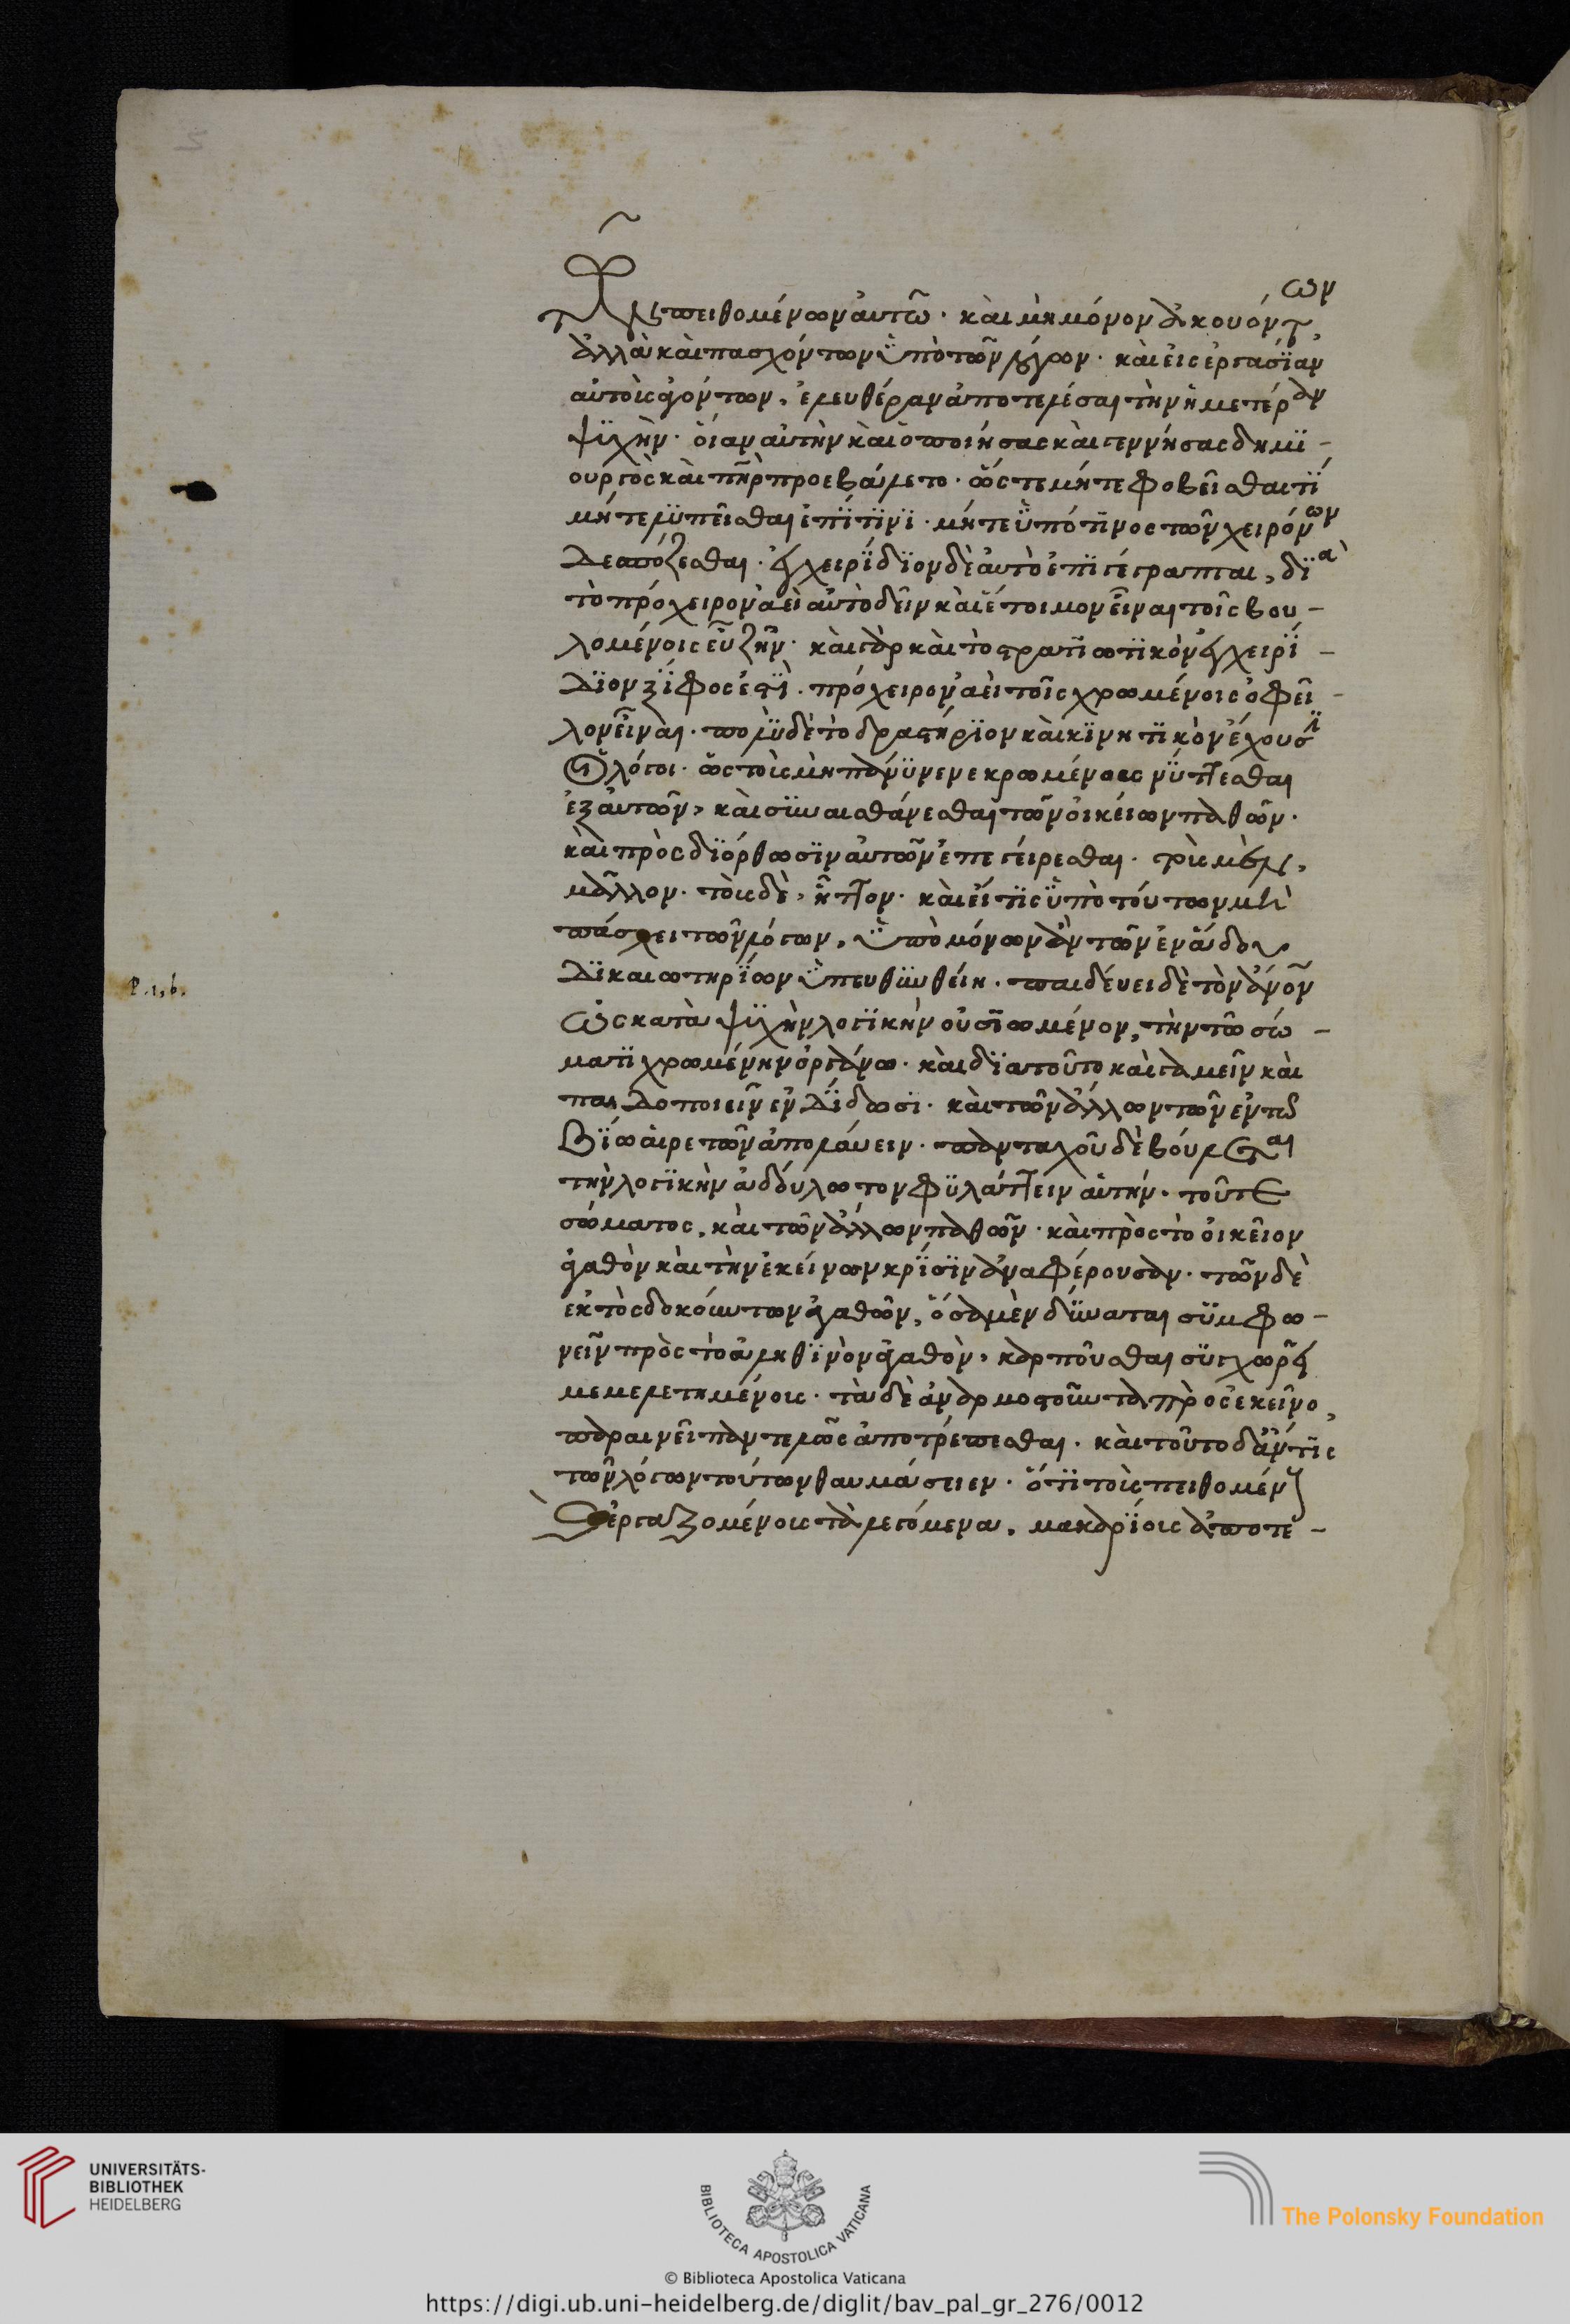 πειθομένων αὐτῶ. καὶ μὴ μόνον ἀκουόντων
ἀλλὰ καὶ πασχόντων ὑπὸ τῶν λόγων. καὶ εἰς ἐργασΐαν
αὐτοὺς ἀγόντων, ἐλευθέραν ἀποτελέσαι τὴν ἡμετέραν
ψϋχὴν. οἵαν αὐτὴν καὶ ὁ ποιήσας καὶ γεννήσας δημϊ-
ουργὸς καὶ πηρ προεβάλετο. ὥστε μήτε φοβεῖσθαι τῒ
μήτε λϋπεῖσθαι ἐπΐ τϊνϊ. μήτε ὑπό τϊνος τῶν χειρόνων
δεσπόζεσθαι. ἐγχειρΐδϊον δὲ αὐτὸ ἐπϊγέγραπται, δϊὰ
τὸ πρόχειρον ἀεὶ αὐτὸ δεῖν καὶ ἕτοιμον εἶναι τοῖς βου-
λομένοις εὖ ζῆν. καὶ γὰρ καὶ τὸ στρατϊωτϊκὸν ἐγχειρΐ-
δϊον ξΐφος ἐστῒ. πρόχειρον ἀεὶ τοῖς χρωμένοις ὀφεῖ-
λον εἶναι. πολὺ δὲ τὸ δραστήρϊον καὶ κϊνητϊκὸν ἔχουσϊ
οἱ λόγοι. ὥς τοὺς μὴ πάνϋ νενεκρωμένους νύττεσθαι
ἐξ αὐτῶν, καὶ συναισθάνεσθαι τῶν οἰκείων παθῶν.
καὶ πρὸς δϊόρθωσϊν αὐτῶν ἐπεγείρεσθαι. τοὺς μὲν,
μᾶλλον. τοὺς δὲ, ἧττον. καὶ εἴ τϊς ὑπὸ τούτων μὴ
πάσχει τῶν λόγων, ὑπὸ μόνων ἂν τῶν ἐν ἅδου
δϊκαιωτηρΐων ὑπευθυνθείη. παιδεύει δὲ τὸν ἄνον
ὡς κατὰ ψϋχὴν λογϊκὴν οὐσϊωμένον, τὴν τῶ σώ-
ματϊ χρωμένην ὀργάνω. καὶ δϊατοῦτο καὶ γαμεῖν καὶ
παιδοποιεῖν ἐνδΐδωσϊ. καὶ τῶν ἄλλων τῶν ἐν τῶ
βΐω αἱρετῶν ἀπολαύειν. πανταχοῦ δὲ βούλεται
τὴν λογϊκὴν ἀδούλωτον φϋλάττειν αὐτήν. τοῦ τε
σώματος, καὶ τῶν ἄλλων παθῶν. καὶ πρὸς τὸ οἰκεῖον
ἀγαθὸν καὶ τὴν ἐκείνων κρΐσϊν ἀναφέρουσαν. τῶν δὲ
ἐκτὸς δοκούντων ἀγαθῶν, ὅσα μὲν δύναται συμφω-
νεῖν πρὸς τὸ ἀληθϊνὸν ἀγαθὸν, καρποῦσθαι συγχωρεῖ
μεμελετημένοις. τὰ δὲ ἀναρμοστοῦντα πρὸς ἐκεῖνο,
παραινεῖ παντελῶς ἀποτρέπεσθαι. καὶ τοῦτο δ' ἄν τϊς
τῶν λόγων τούτων θαυμάσειεν. ὅτϊ τοὺς πειθομένους
καὶ ἐργαζομένους τὰ λεγόμενα, μακαρΐους ἀποτε-
P. 1, b.
UNIVERSITÄTS-
BIBLIOTHEK
HEIDELBERG
BIBLIOTECA APOSTOLICA VATICANA
The Polonsky Foundation
© Biblioteca Apostolica Vaticana
https://digi.ub.uni-heidelberg.de/diglit/bav_pal_gr_276/0012